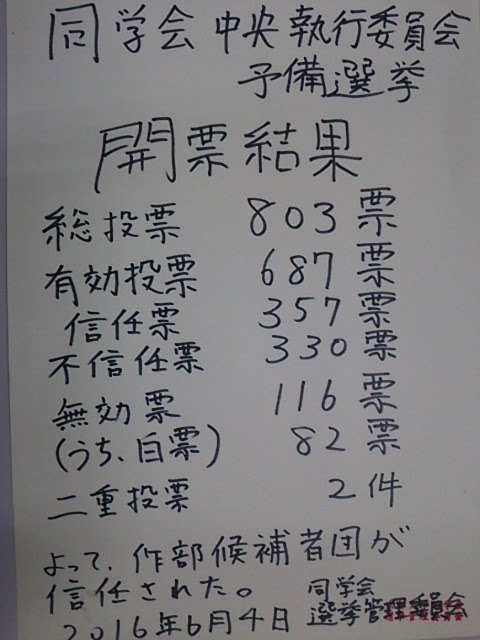 同学会 中央執行委員会
予備選挙
開票結果
総投票 803票
有効投票 687票
信任票 357票
不信任票 330票
無効票 116票
(うち、白票) 82票
二重投票 2件
よって、作部候補者団が
信任された。
同学会
2016年6月4日 選挙管理委員会